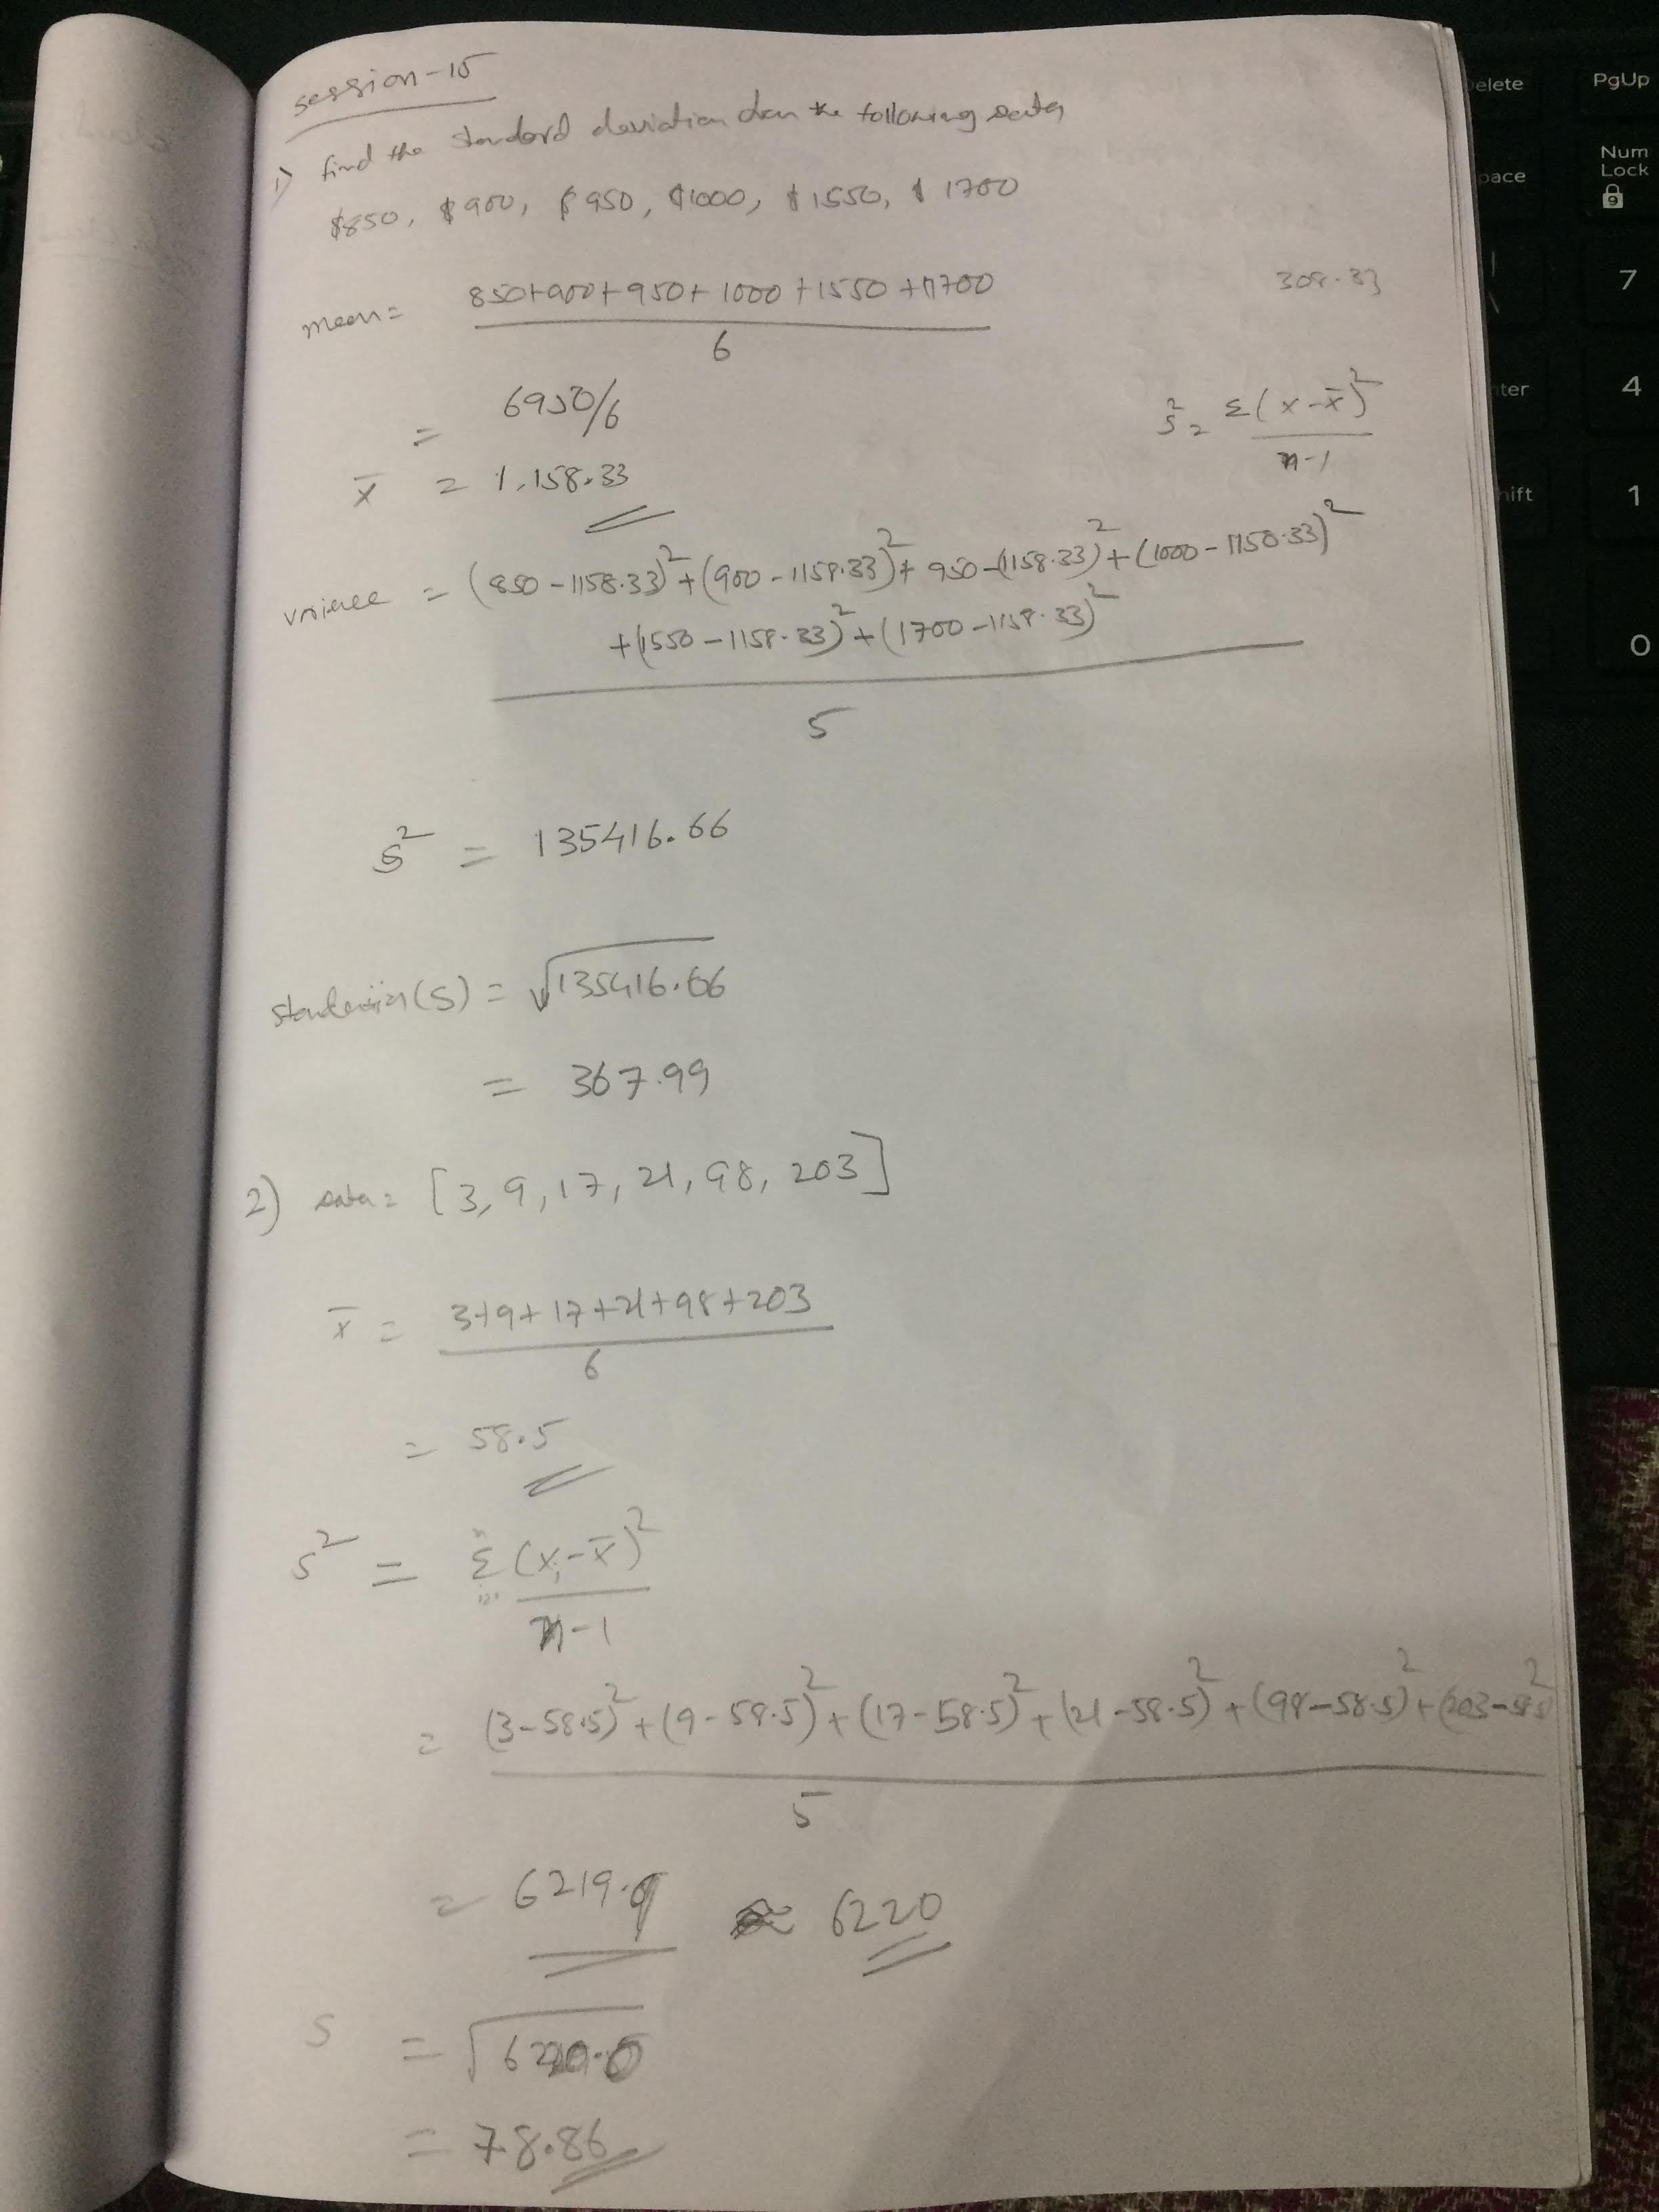 session-15
1) find the standard deviation the following data
$850, $900, $950, $1000, $1550, $1700
mean = 850+900+950+1000+1550+1700
6
308.33
= 6950/6
x̄ = 1,158.33
s² = Σ(x-x̄)²
n-1
= (850-1158.33)²+(900-1158.33)²+950-(1158.33)²+(1000-1158.33)²
+(1550-1158.33)²+(1700-1158.33)²
5
s² = 135416.66
(S) = √135416.66
= 367.99
2) data = [3, 9, 17, 21, 98, 203]
x̄ = 3+9+17+21+98+203
6
= 58.5
s² = Σ(xᵢ-x̄)²
n-1
= (3-58.5)²+(9-58.5)²+(17-58.5)²+(21-58.5)²+(98-58.5)²+(203-58.5)²
5
= 6219.9 ≈ 6220
S = √6220.0
= 78.86
Delete
PgUp
Num
Lock
9
7
4
1
0